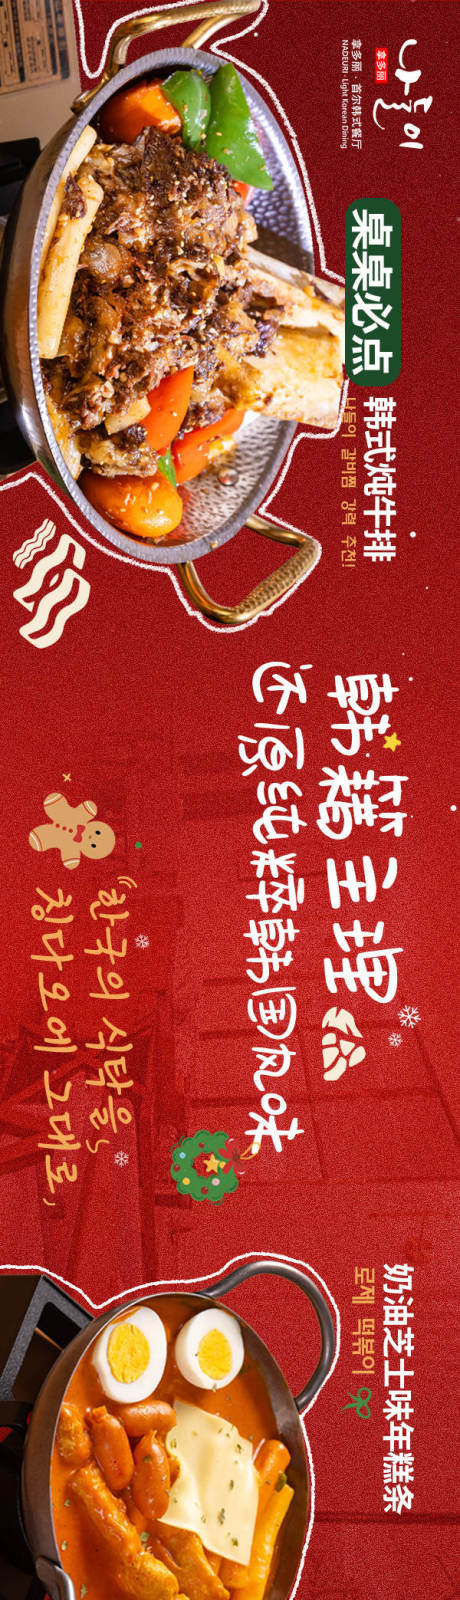 나들이
拿多丽
拿多丽·首尔韩式餐厅
NADEURI · Light Korean Dining
桌桌必点
韩式炖牛排
나들이 갈비찜 강력 추천!
韩籍主理
还原纯粹韩国风味
"한국의 식탁을
칭다오에 그대로,
奶油芝士味年糕条
로제 떡볶이